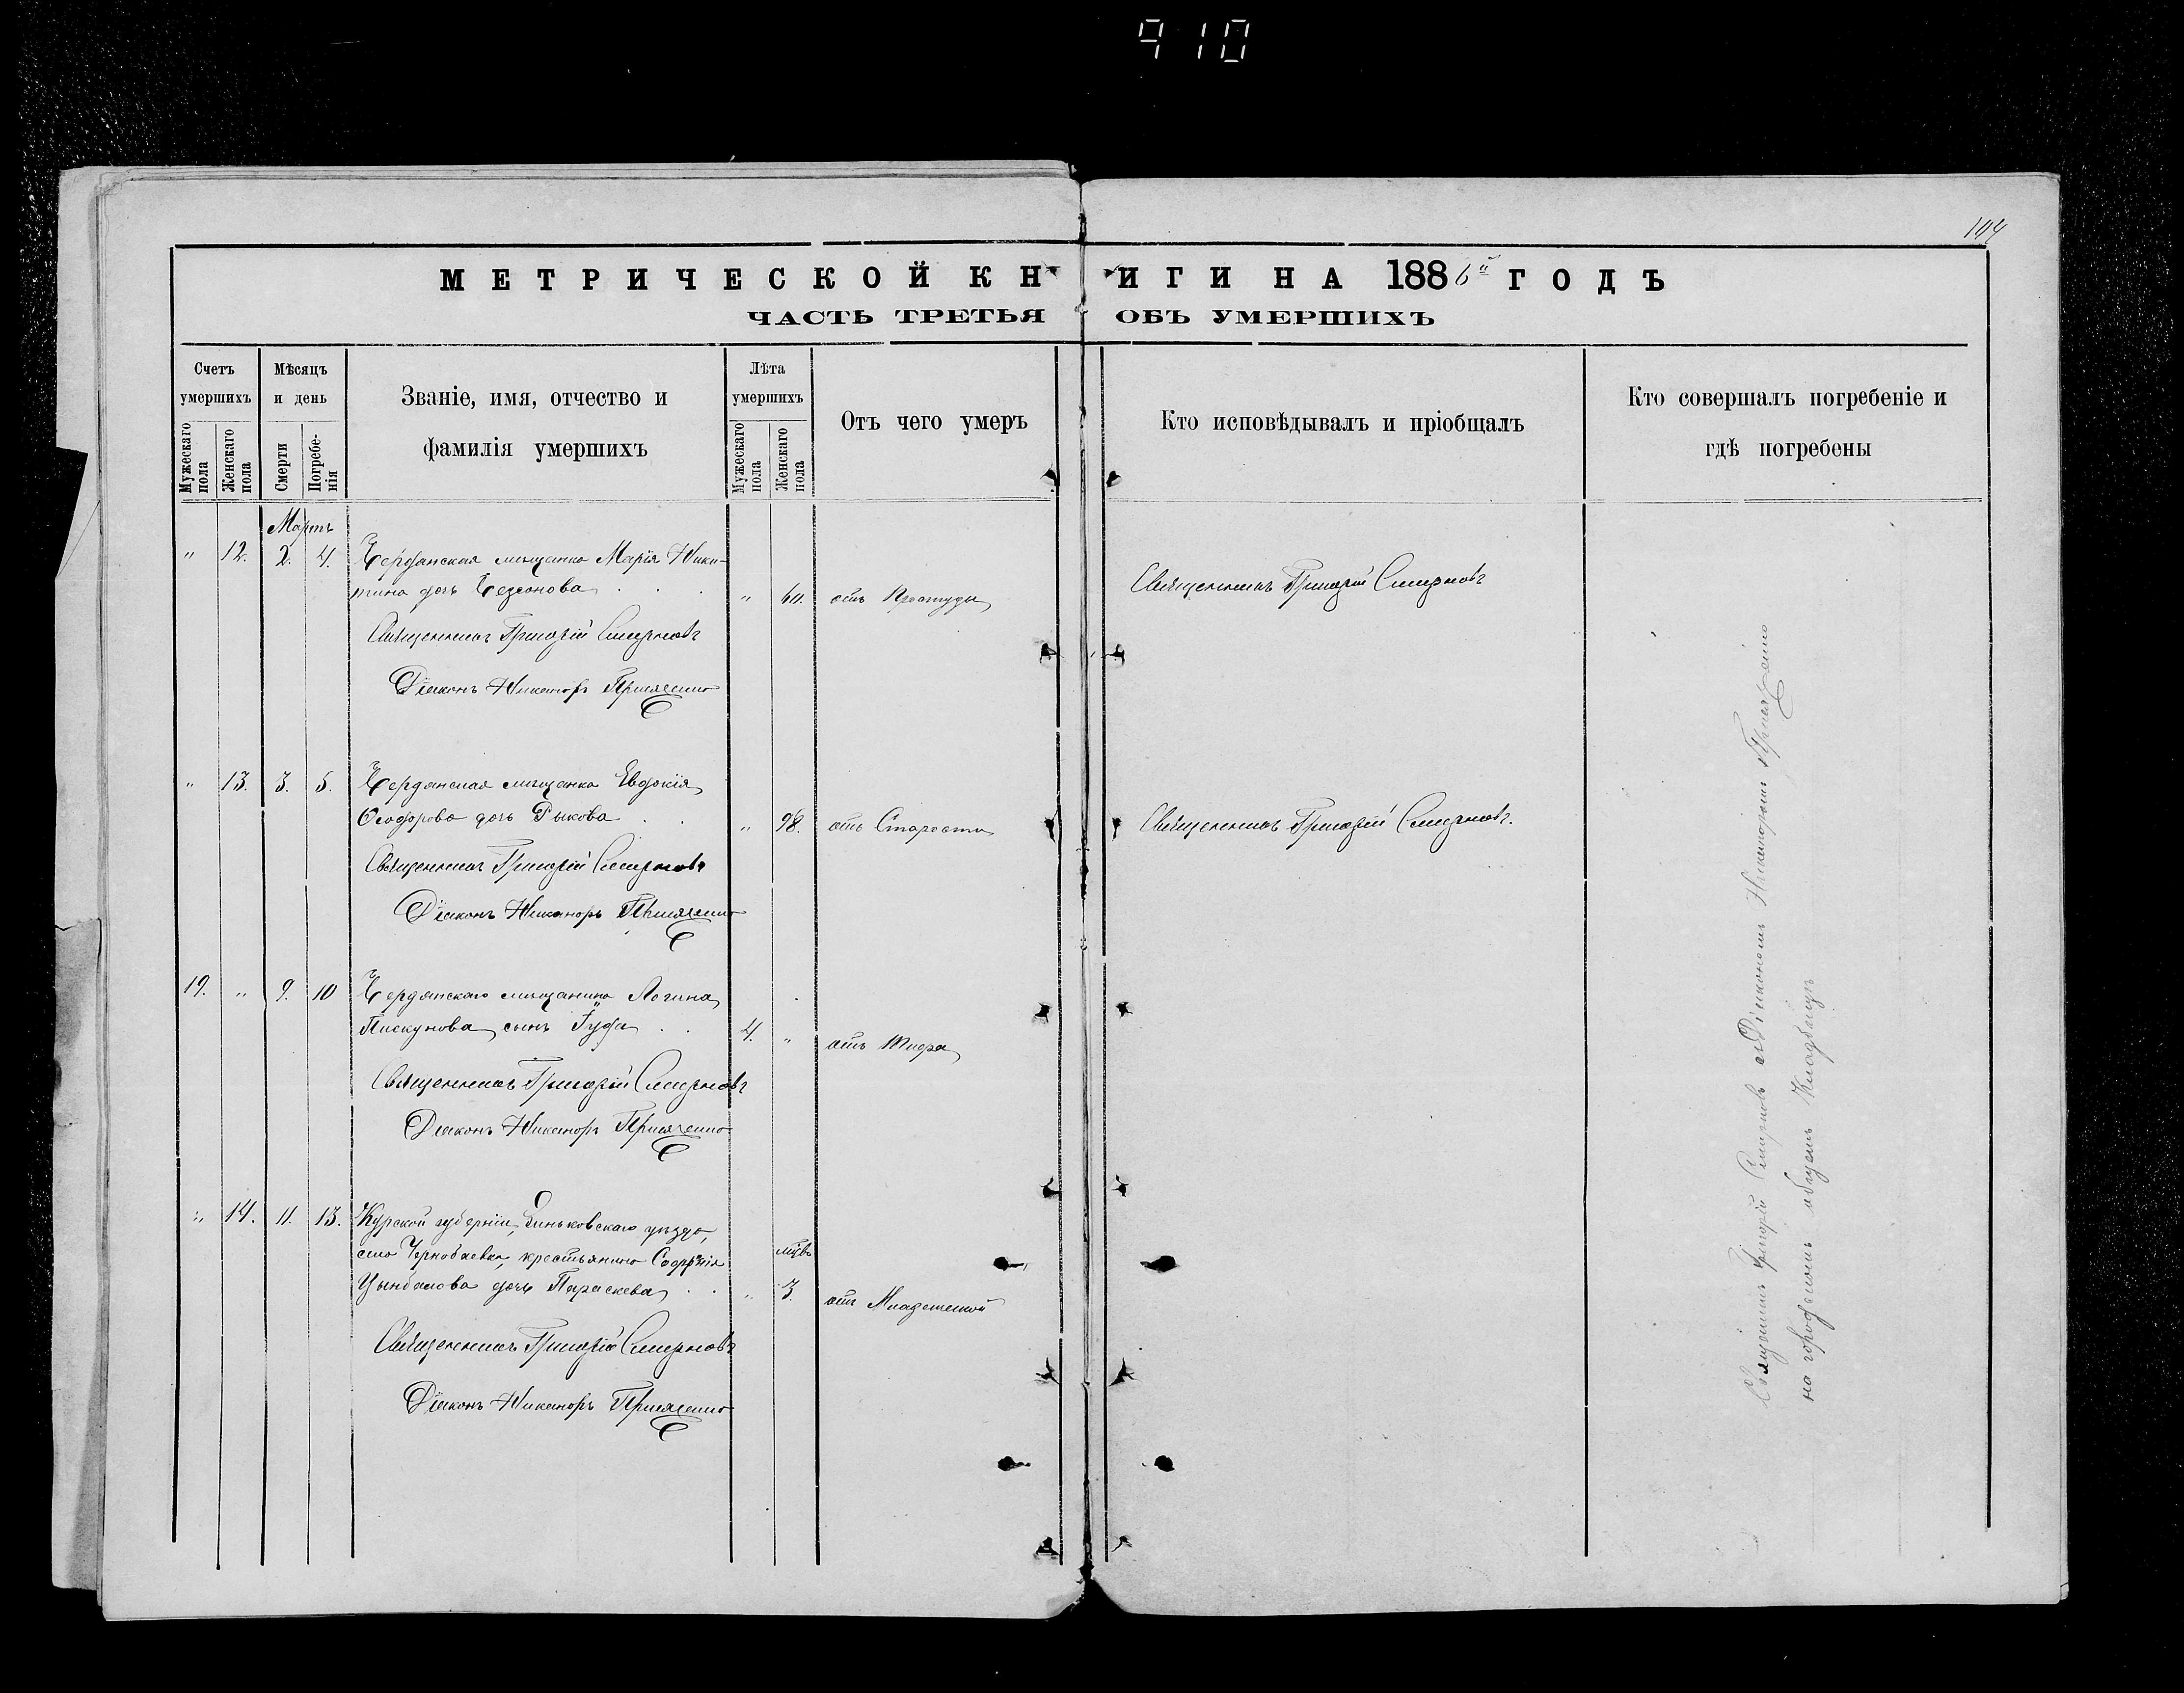 910
144
МЕТРИЧЕСКОЙ КНИГИ НА 1886й ГОДЪ
ЧАСТЬ ТРЕТЬЯ ОБЪ УМЕРШИХЪ
Счетъ умершихъ
Мужескаго пола
Женскаго пола
Мѣсяцъ и день
Смерти
Погребенія
Званіе, имя, отчество и
фамилія умершихъ
Лѣта умершихъ
Мужескаго пола
Женскаго пола
Отъ чего умеръ
Кто исповѣдывалъ и пріобщалъ
Кто совершалъ погребеніе и
гдѣ погребены
Мартъ
" 12. 2. 4. мѣщанка Марія Ники-
тина дочь " отъ Простуды Священникъ Григорій Смирновъ
Священникъ Григорій Смирновъ
Діаконъ Никаноръ
" 13. 3. 5. Бердянская мѣщанка Евдокія
Ѳеодорова дочь Рыкова " 98. отъ Старости Священникъ Григорій Смирновъ.
Священникъ Григорій Смирновъ
Діаконъ Никаноръ
19. " 9. 10 Бердянскаго мѣщанина Логина
Пискунова сынъ 4. " отъ
Священникъ Григорій Смирновъ
Діаконъ Никаноръ
" 14. 11. 13. Курской губерніи, уѣзда,
села Чернобаевки, крестьянина Софронія
Цымбалова дочь Параскева " мцвъ 3. отъ Младенческой
Священникъ Григорій Смирновъ
Діаконъ Никаноръ
Священникъ Григорій Смирновъ съ Діакономъ Никаноромъ
на городскомъ общемъ Кладбищѣ